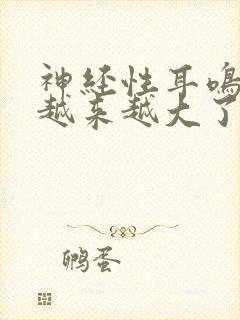 神经性耳鸣
越来越大了
鸭蛋